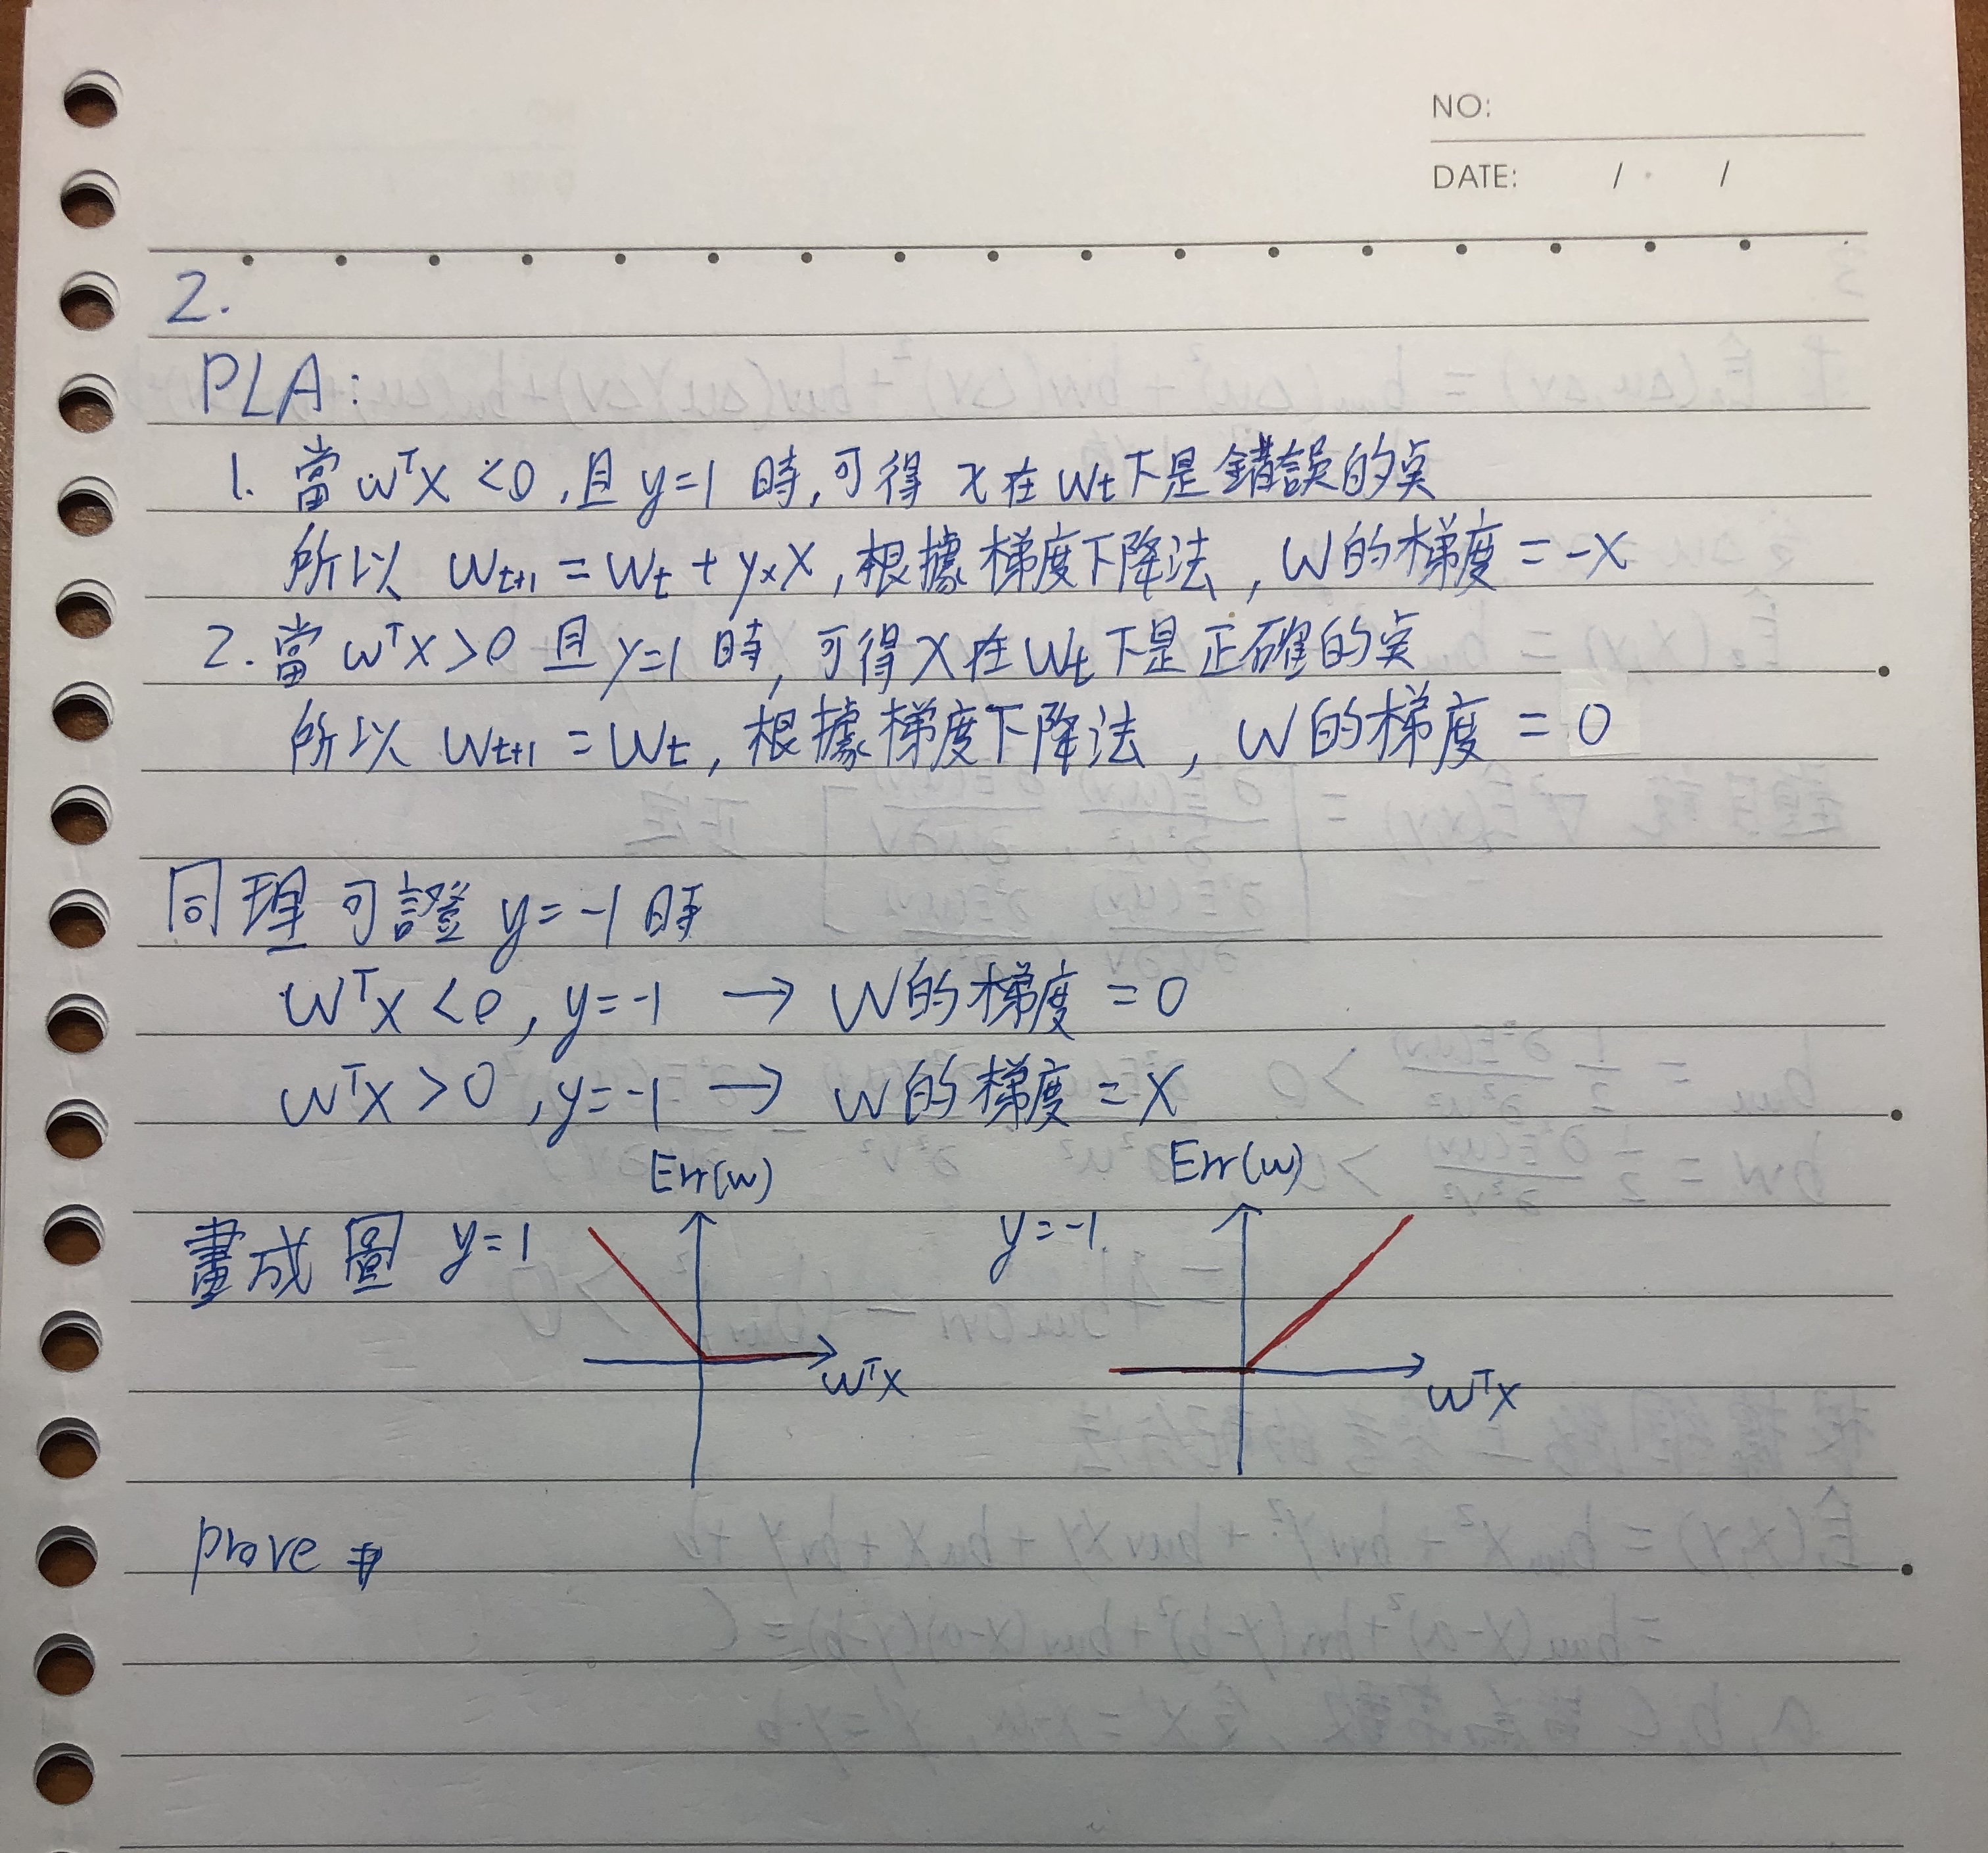 NO:
DATE: / /
2.
PLA:
1. 當 wᵀx <0 ,且 y=1 時,可得 x在 wt下是錯誤的点
所以 wt+1 = wt + y×x ,根據梯度下降法 , w的梯度 = -x
2. 當 wᵀx >0 且 y=1 時, 可得 x在 wt下是正確的点
所以 wt+1 = wt , 根據梯度下降法 , w的梯度 = 0
同理可證 y= -1 時
wᵀx <0 , y= -1 → w的梯度 = 0
wᵀx >0 ,y= -1 → w的梯度 = x
Err(w) Err(w)
畫成圖 y=1 y= -1
wᵀx wᵀx
prove #